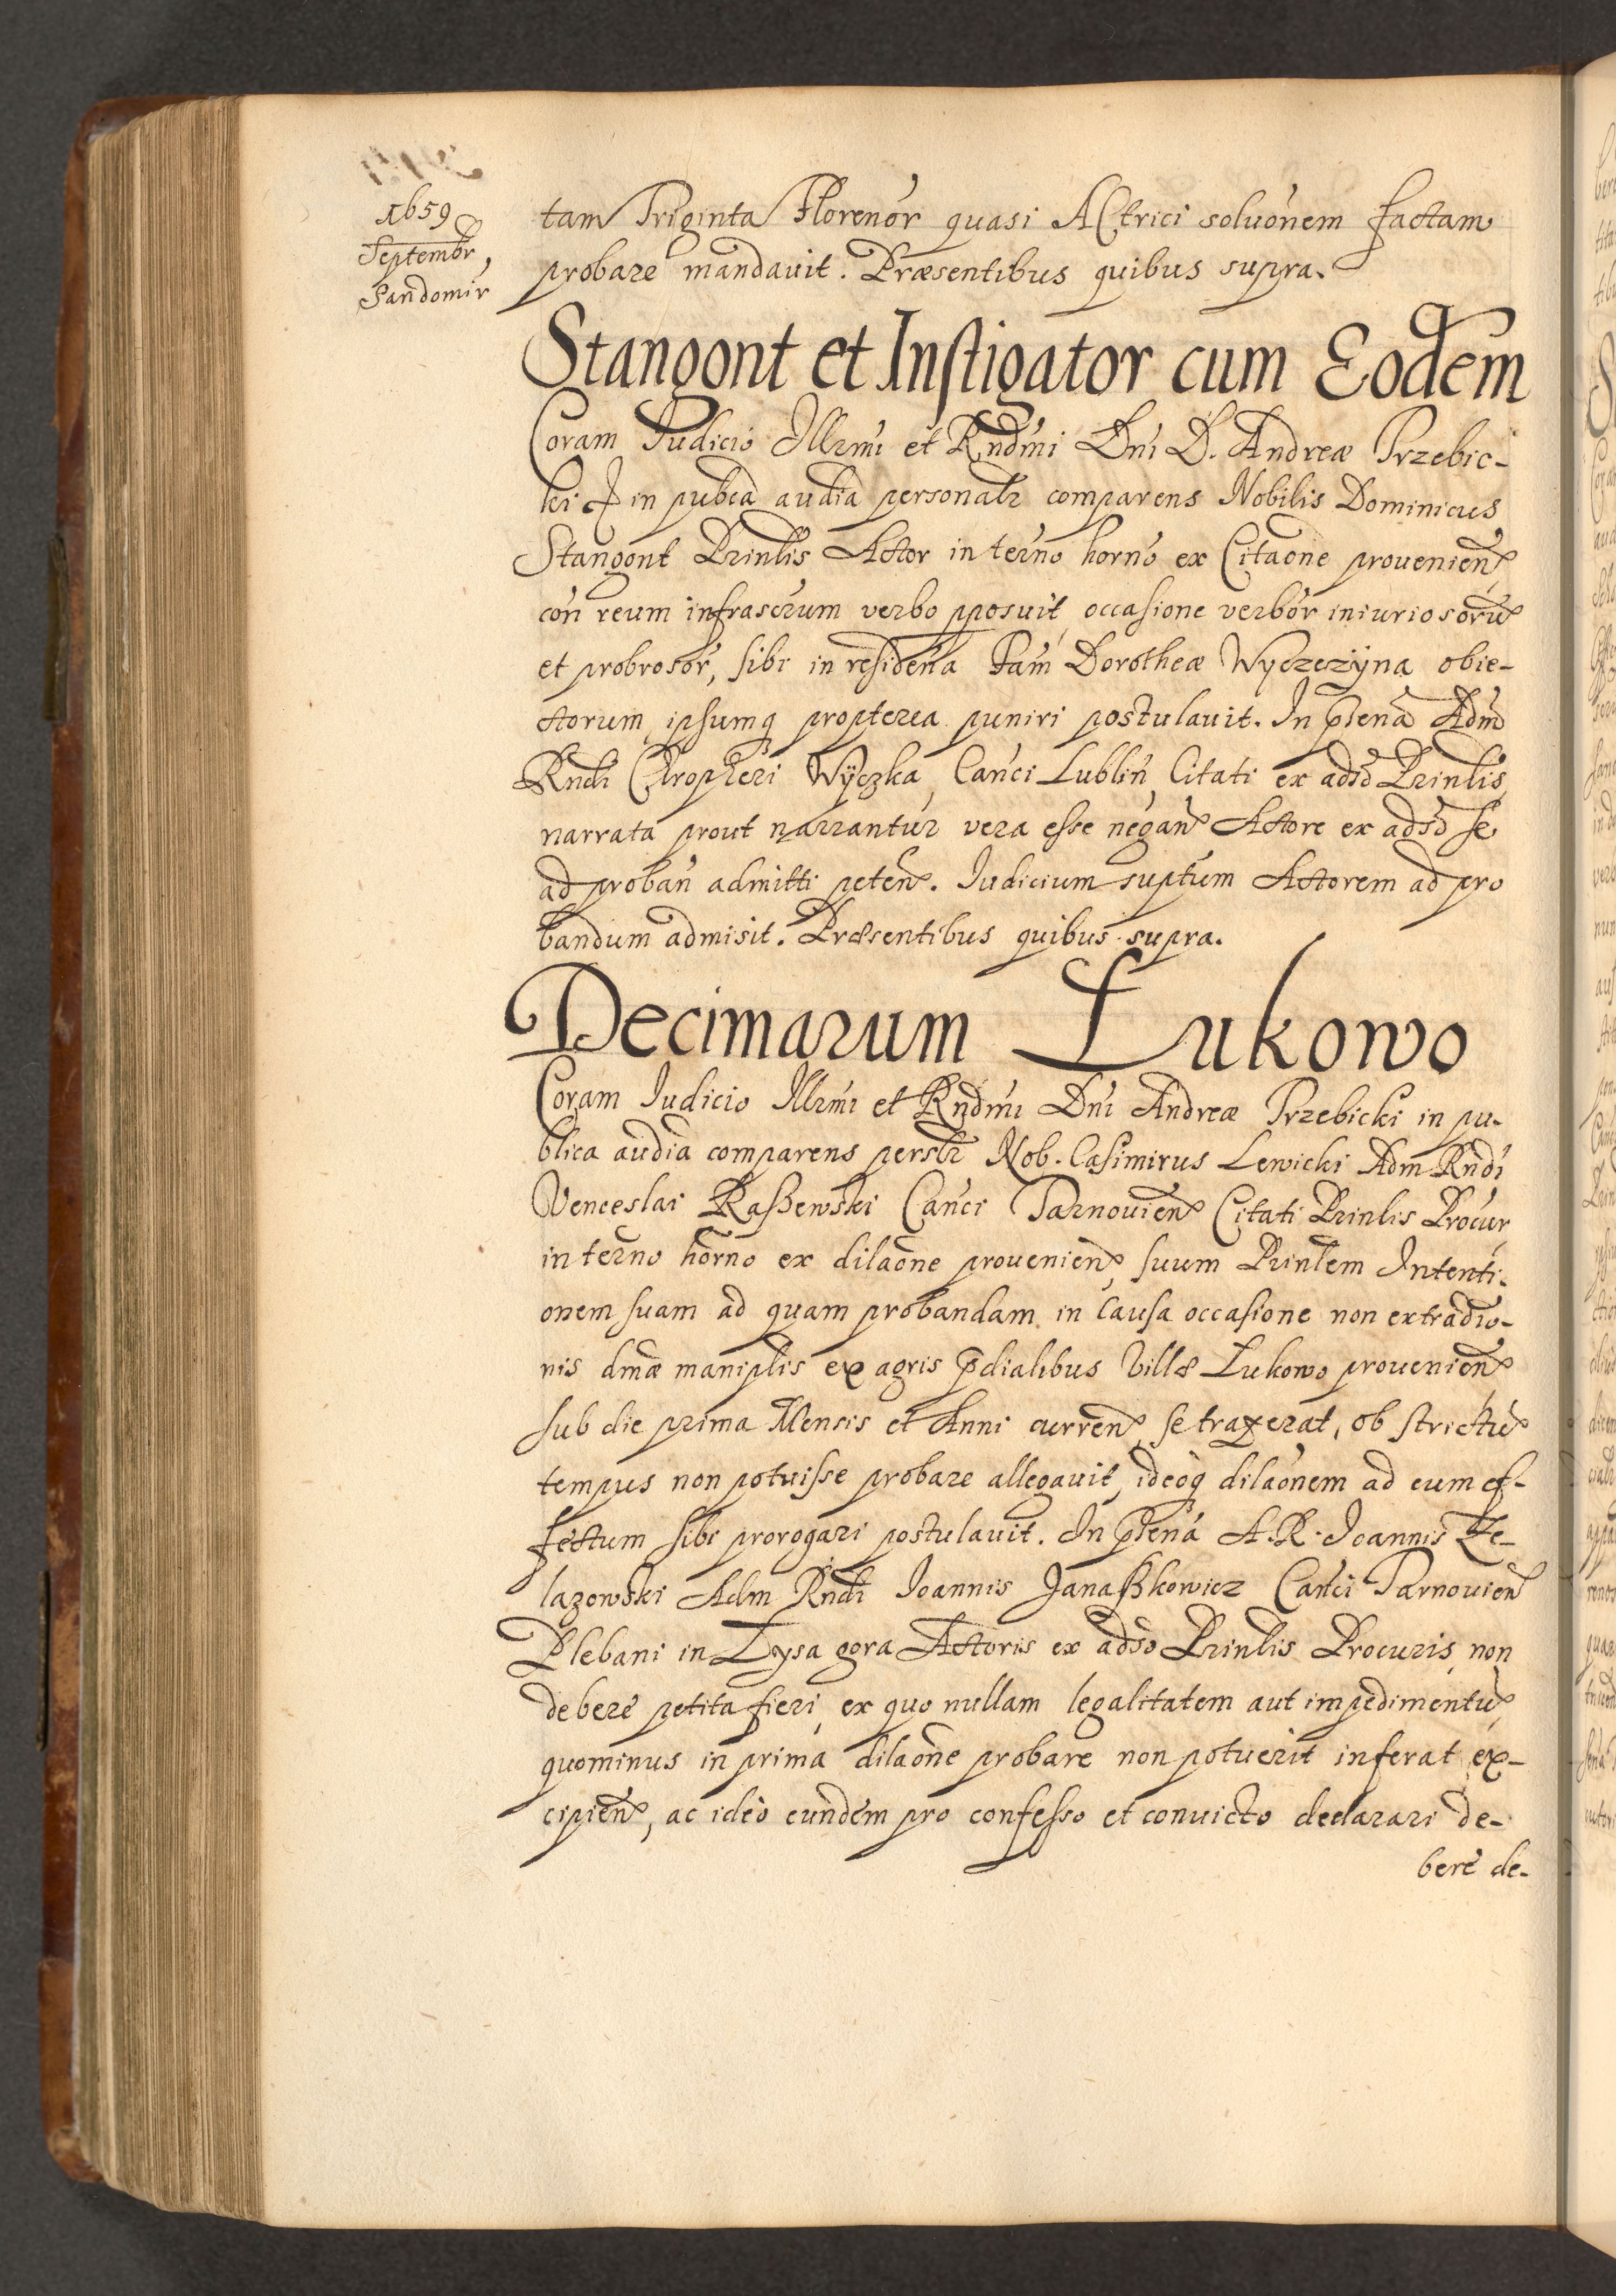 1659
Septembr,
Sandomir
tam Triginta Florenor quasi ACtrici soluonem factam
probare mandauit. Præsentibus quibus supra.
Stangont et Instigator cum Eodem
Coram Iudicio Illrmi et Rndmi Dni D. Andreæ Trzebic-
ki in pubca audia personalr comparens Nobilis Dominicus
Stangont Prinlis Actor in terno horno ex Citaone prouenien
con reum infrascrum verbo pposuit occasione verbor iniuriosoru
et probrosor, sibi in residena Fam Dorotheæ Wyczczÿna obie-
ctorum ipsumq propterea puniri postulauit. In pñena Adm
Rndi Chropheri Wÿczka, Canci Lublin, Citati ex adso Prinlis
narrata prout narrantur vera esse negan Actore ex adso se
ad proban admitti peten. Iudicium suptum Actorem ad pro
bandum admisit. Præsentibus quibus supra.
Decimarum Łukowo
Coram Iudicio Illrmi et Rndmi Dni Andreæ Trzebicki in pu-
blica audia comparens perslr Nob. Casimirus Lewicki Adm Rndi
Venceslai Raszewski Canci Tarnouien Citati Prinlis Procur
in terno horno ex dilaone prouenien, suum Prinlem Intenti-
onem suam ad quam probandam in causa occasione non extradio-
nis dmæ maniplis ex agris pdialibus Villæ Łukowo prouenien
sub die prima Mensis et Anni curren se traxerat, ob strictu
tempus non potuisse probare allegauit, ideoq dilaonem ad eum ef-
fectum sibi prorogari postulauit. In pñena A. R. Ioannis Ze-
lazowski Adm Rndi Ioannis Janaszkowicz Canci Tarnouien
Plebani in Łysa gora Actoris ex adso Prinlis Procuris, non
debere petita fieri, ex quo nullam legalitatem aut impedimentu
quominus in prima dilaone probare non potuerit inferat, ex-
cipien, ac ideo eundem pro confesso et conuicto declarari de-
bere de-